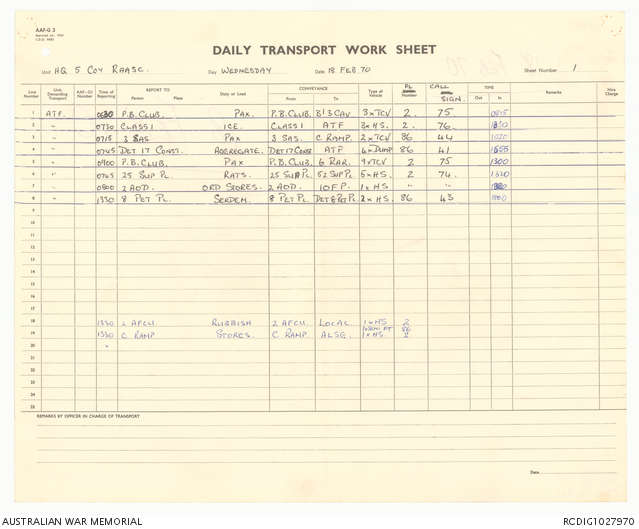 AAF-G 3
DAILY TRANSPORT WORK SHEET
Unit HQ 5 COY RAASC. Day WEDNESDAY Date 18 FEB 70 Sheet Number 1
Line Number Unit Demanding Transport Time of Reporting REPORT TO Person Place Duty or Load CONVEYANCE From To Type of Vehicle PL Number CALL SIGN. TIME Out In Remarks Hire Charge
1 ATF. 0630 P.B. CLUB. PAX. P.B. CLUB. B/3 CAV 3xTCV 2. 75
2 " 0730 CLASS 1 ICE. CLASS 1 ATF 3xHS. 2. 76
3 " 0715 3 SAS PAX 3 SAS. C RAMP. 2xTCV 86 44
4 " 0745 DET 17 CONST. AGGREGATE. DET 17 CONST ATF 4xDUMP 86 41
5 " 0900 P.B. CLUB. PAX P.B. CLUB. 6 RAR. 4xTCV 2 75 1300
6 " 0745 25 SUP PL. RATS. 25 SUP PL. 52 SUP PL 5xHS. 2 74.
7 " 0800 2 AOD. ORD STORES. 2 AOD. 1 OFP. 1xHS " "
8 " 1330 8 PET PL. 8 PET PL. 2xHS. 86 43
9
10
11
12
13
14
15
16
17
18 1330 2 AFCU RUBBISH 2 AFCU. LOCAL 1xHS 2
19 1330 C RAMP STORES. C RAMP ALSG. 1xHS.
20 "
21
22
23
24
25
REMARKS BY OFFICER IN CHARGE OF TRANSPORT
Date
AUSTRALIAN WAR MEMORIAL RCDIG1027970